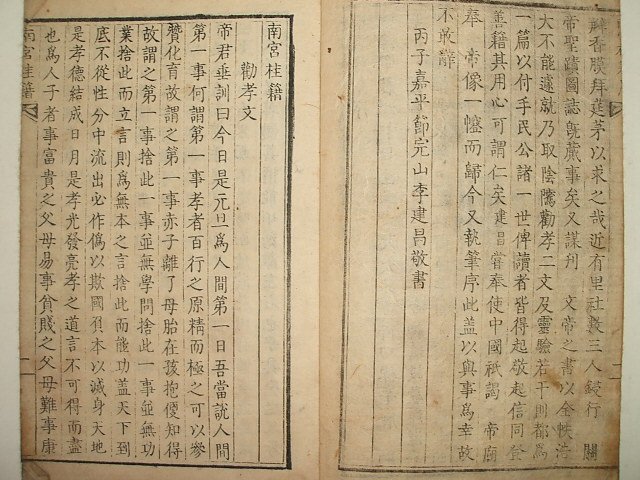 瓣香膜拜蓬茅以求之哉近有里社數三人鋟行 關
帝聖蹟圖誌旣蕆事矣又謀刊 文帝之書以全帙浩
大不能遽就乃取陰騭勸孝二文及靈驗若干則都爲
一篇以付手民公諸一世俾讀者皆得起敬起信同登
善籍其用心可謂仁矣建昌嘗奉使中國祗謁 帝廟
奉 帝像一幢而歸今又執筆序此盖以與事爲幸故
不敢辭
丙子嘉平節完山李建昌敬書
南宮桂籍
勸孝文
帝君垂訓曰今日是元旦爲人間第一日吾當說人間
第一事何謂第一事孝者百行之原精而極之可以參
贊化育故謂之第一事赤子離了母胎在孩抱便知得
故謂之第一事捨此一事並無學問捨此一事並無功
業捨此而立言則爲無本之言捨此而能功盖天下到
底不從性分中流出必作僞以欺國負本以滅身天地
是孝德結成日月是孝光發亮孝之道言不可得而盡
也爲人子者事富貴之父母易事貧賤之父母難事康
南宮桂籍 一